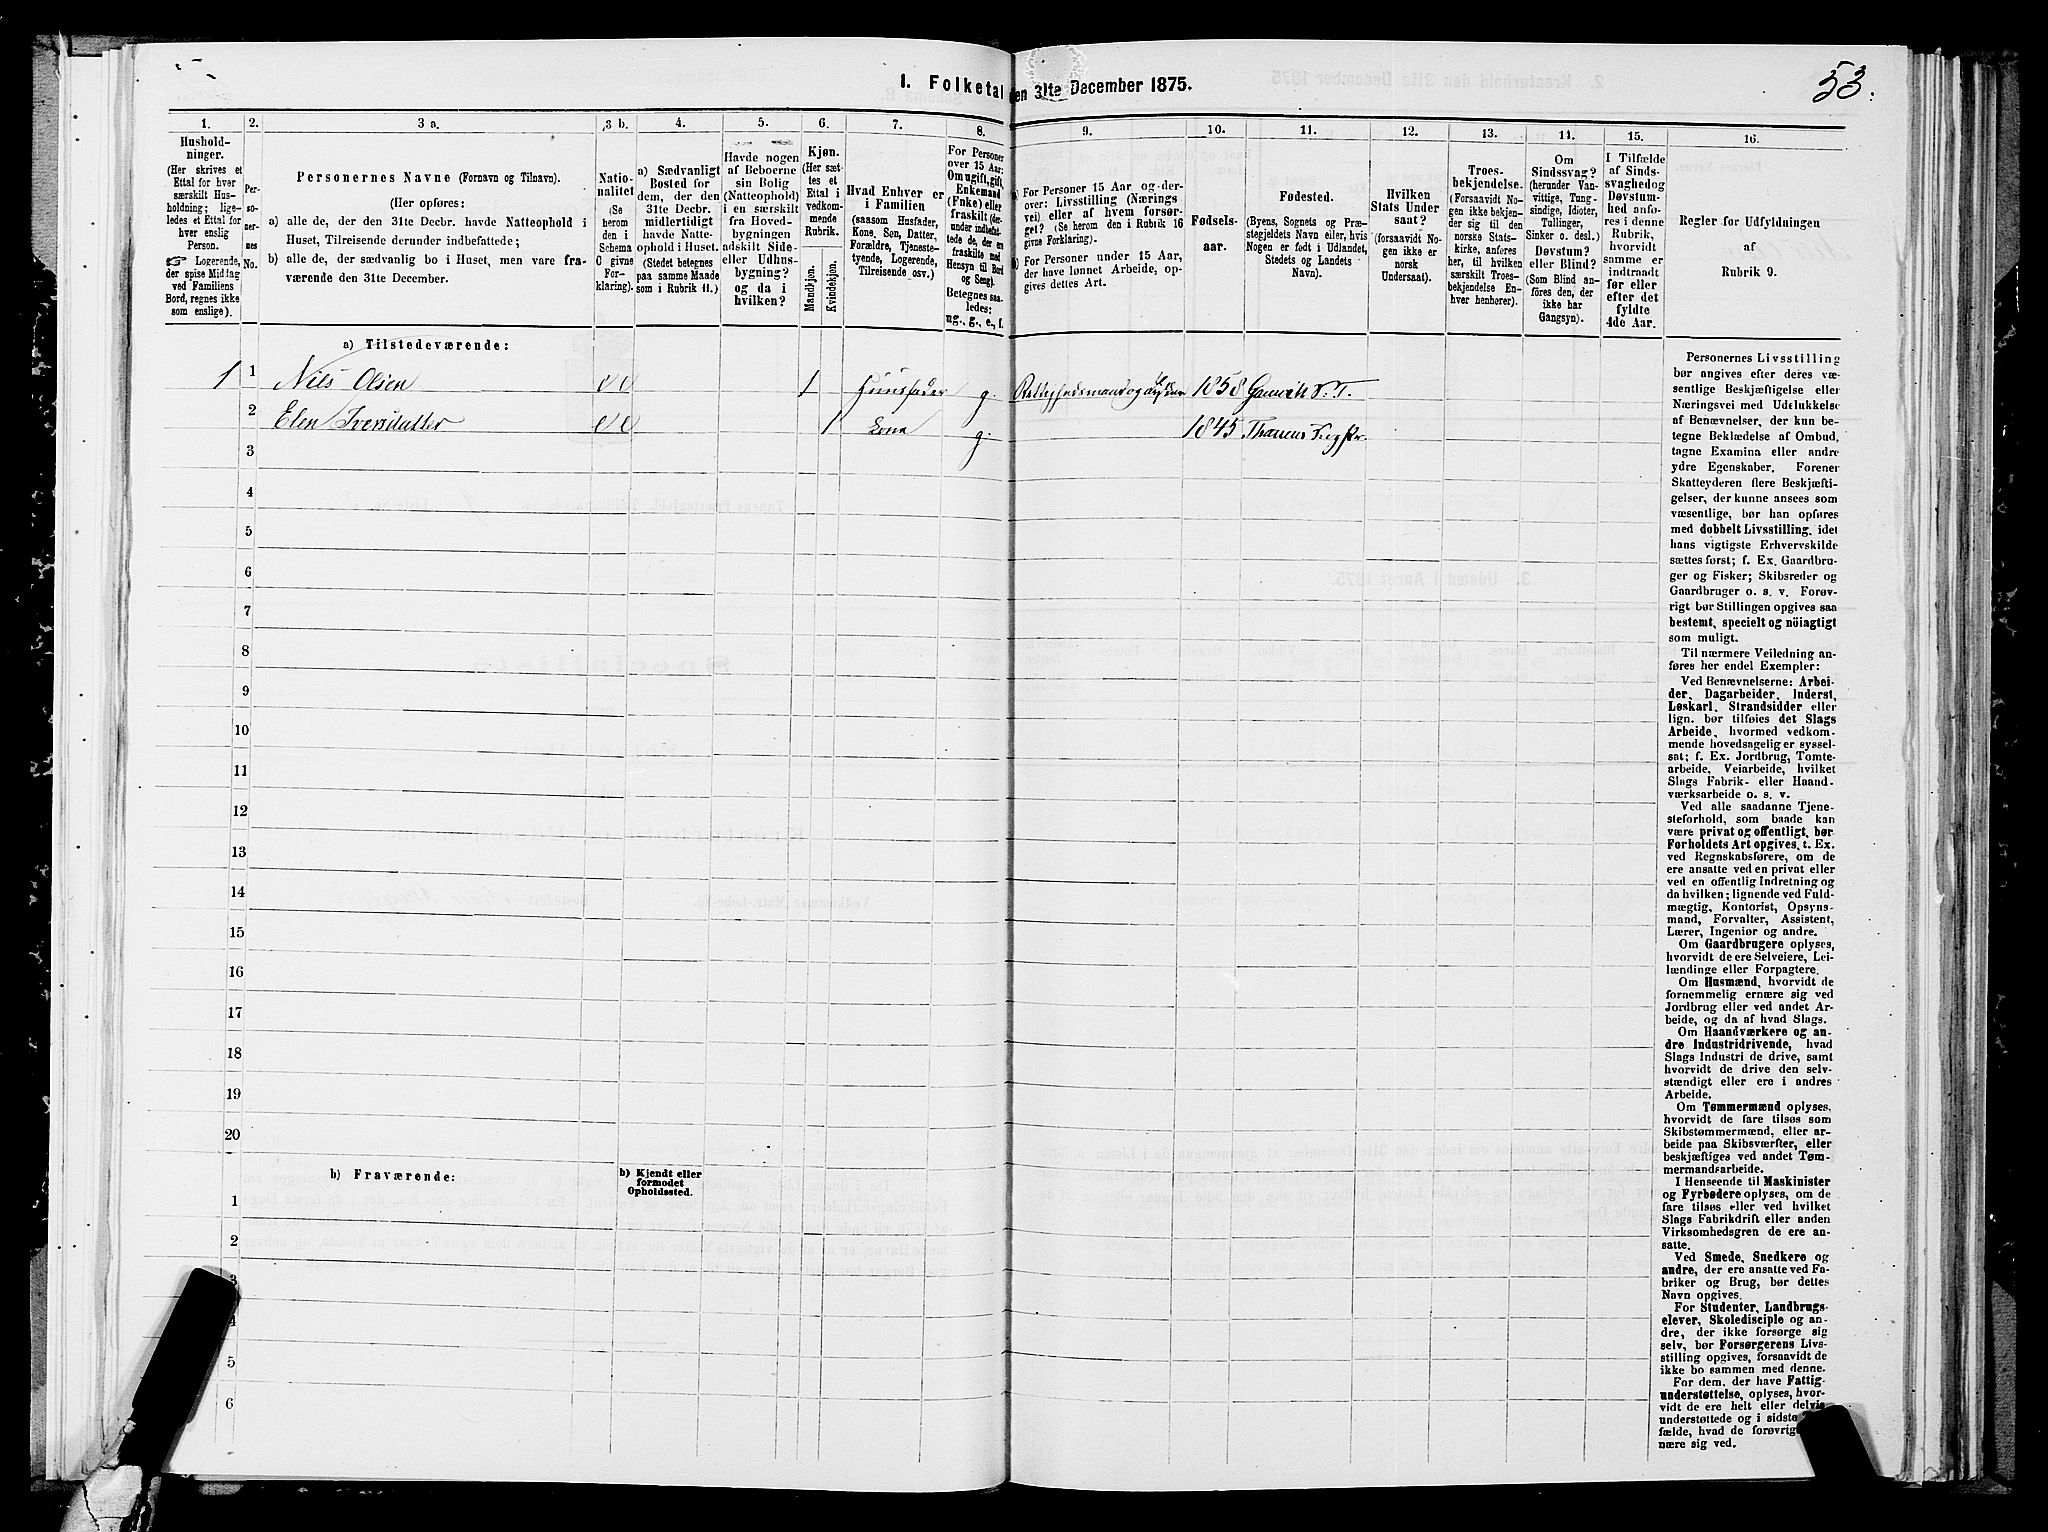 53.
1. Folketal den 31te December 1875.
1. 2. 3 a. 3 b. 4. 5. 6. 7. 8. 9. 10. 11. 12. 13. 14. 15. 16.
Hushold-
ninger.
(Her skrives et
Ettal for hver
særskilt Hus-
holdning; lige-
ledes et Ettal for
hver enslig
Person.
☞ Logerende,
der spise Middag
ved Familiens
Bord, regnes ikke
som enslige).
Per-
so-
ner-
nes
No.
Personernes Navne (Fornavn og Tilnavn).
(Her opføres:
a) alle de, der den 31te Decbr. havde Natteophold i
Huset, Tilreisende derunder indbefattede;
b) alle de, der sædvanlig bo i Huset, men vare fra-
værende den 31te December.
Natio-
nalitet
(Se
herom
den i
Schema
C givne
For-
klaring).
a) Sædvanligt
Bosted for
dem, der den
31te Decbr.
midlertidigt
havde Natte-
ophold i Huset.
(Stedet betegnes
paa samme Maade
som i Rubrik 11.)
Havde nogen
af Beboerne
sin Bolig
(Natteophold)
i en særskilt
fra Hoved-
bygningen
adskilt Side-
eller Udhus-
bygning?
og da i
hvilken?
Kjøn.
(Her sæt-
tes et
Ettal i
vedkom-
mende
Rubrik.
Mandkjøn.
Kvindekjøn.
Hvad Enhver er
i Familien
(saasom Husfader,
Kone, Søn, Datter,
Forældre, Tjeneste-
tyende, Logerende,
Tilreisende osv.)
For Personer
over 15 Aar:
Om ugift, gift,
Enkemand
(Enke) eller
fraskilt (der-
under indbefat-
tede de, der en
fraskilte med
Hensyn til Bord
og Seng).
Betegnes saa-
ledes:
ug., g., e., f.
a) For Personer 15 Aar og der-
over: Livsstilling (Nærings
vei) eller af hvem forsør-
get? (Se herom den i Rubrik 16
givne Forklaring).
b) For Personer under 15 Aar,
der have lønnet Arbeide, op-
gives dettes Art.
Fødsels-
aar.
Fødested.
(Byens, Sognets og Præ-
stegjeldets Navn eller, hvis
Nogen er født i Udlandet,
Stedets og Landets
Navn).
Hvilken
Stats Under
saat?
(forsaavidt No-
gen ikke er
norsk
Undersaat).
Troes-
bekjendelse.
(Forsaavidt No-
gen ikke bekjen-
der sig til den
norske Stats-
kirke, anføres
her, til hvilken
særskilt Troes-
bekjendelse En-
hver henhører).
Om
Sindssvag?
(herunder Van-
vittige, Tung-
sindige, Idioter,
Tullinger,
Sinker o. desl.)
Døvstum?
eller Blind?
(Som Blind an-
føres den, der
ikke har
Gangsyn).
I Tilfælde
af Sinds-
svaghed og
Døvstum-
hed anfø-
res i denne
Rubrik,
hvorvidt
samme er
indtraadt
før eller
efter det
fyldte
4de Aar.
Regler for Udfyldningen
af
Rubrik 9.
a) Tilstedeværende:
1 1 Nils Olsen 1 Huusfader g. 1858
2 Elen Iversdatter 1 Kona g. 1845
3
4
5
6
7
8
9
10
11
12
13
14
15
16
17
18
19
20
b) Fraværende:
b) Kjendt eller
formodet
Opholdssted.
1
2
3
4
5
6
Personernes Livsstilling
bør angives efter deres væ-
sentlige Beskjæftigelse eller
Næringsvei med Udelukkelse
af Benævnelser, der kun be-
tegne Beklædelse af Ombud,
tagne Examina eller andre
ydre Egenskaber. Forener
Skatteyderen flere Beskjæfti-
gelser, der kunne ansees som
væsentlige, bør han opføres
med dobbelt Livsstilling, idet
hans vigtigste Erhvervskilde
sættes først; f. Ex. Gaardbru-
ger og Fisker; Skibsreder og
Gaardbruger o. s. v. Forøv-
rigt bør Stillingen opgives saa
bestemt, specielt og nöiagtigt
som muligt.
Til nærmere Veiledning an-
føres her endel Exempler:
Ved Benævnelserne: Arbei-
der, Dagarbeider, Inderst,
Løskarl, Strandsidder eller
lign. bør tilføies det Slags
Arbeide, hvormed vedkom-
mende hovedsagelig er syssel-
sat; f. Ex. Jordbrug, Tomte-
arbeide, Veiarbeide, hvilket
Slags Fabrik- eller Haand-
værksarbeide o. s. v.
Ved alle saadanne Tjene-
steforhold, som baade kan
være privat og offentligt, bør
Forholdets Art opgives, t. Ex.
ved Regnskabsførere, om de
ere ansatte ved en privat eller
ved en offentlig Indretning og
da hvilken; lignende ved Fuld-
mægtig, Kontorist, Opsyns-
mand, Forvalter, Assistent,
Lærer, Ingeniør og andre.
Om Gaardbrugere oplyses,
hvorvidt de ere Selveiere, Lei-
lændinge eller Forpagtere.
Om Husmænd, hvorvidt de
fornemmelig ernære sig ved
Jordbrug eller ved andet Ar-
beide, og da af hvad Slags.
Om Haandværkere og an-
dre Industridrivende, hvad
Slags Industri de drive, samt
hvorvidt de drive den selv-
stændigt eller ere i andres
Arbeide.
Om Tømmermænd oplyses,
hvorvidt de fare tilsøs som
Skibstømmermænd, eller ar-
beide paa Skibsværfter, eller
beskjæftiges ved andet Tøm-
mermandsarbeide.
I Henseende til Maskinister
og Fyrbødere oplyses, om de
fare tilsøs eller ved hvilket
Slags Fabrikdrift eller anden
Virksomhedsgren de ere an-
satte.
Ved Smede, Snedkere og
andre, der ere ansatte ved Fa-
briker og Brug, bør dettes
Navn opgives.
For Studenter, Landbrugs-
elever, Skoledisciple og an-
dre, der ikke forsørge sig
selv, bør Forsørgerens Livs-
stilling opgives, forsaavidt de
ikke bo sammen med denne.
For dem, der have Fattig-
understøttelse, oplyses, hvor-
vidt de ere helt eller delvis
understøttede og i sidste
fælde, hvad de forøvrig
nære sig ved.